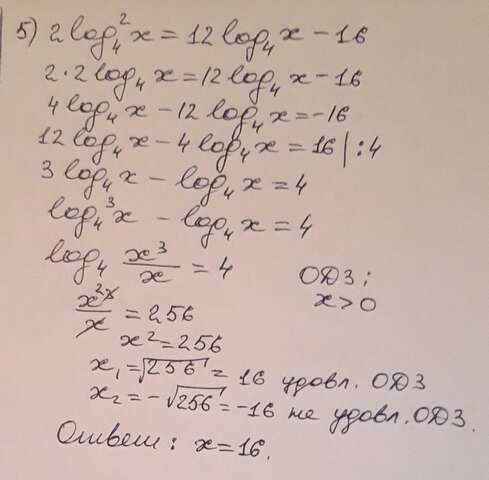 5) 2 log₄² x = 12 log₄ x − 16
2·2 log₄ x = 12 log₄ x − 16
4 log₄ x − 12 log₄ x = −16
12 log₄ x − 4 log₄ x = 16 | :4
3 log₄ x − log₄ x = 4
log₄³ x − log₄ x = 4
log₄ x³/x = 4
ОДЗ:
x > 0
x²x/x = 256
x² = 256
x₁ = √256 = 16 удовл. ОДЗ
x₂ = −√256 = −16 не удовл. ОДЗ.
Ответ: x = 16.